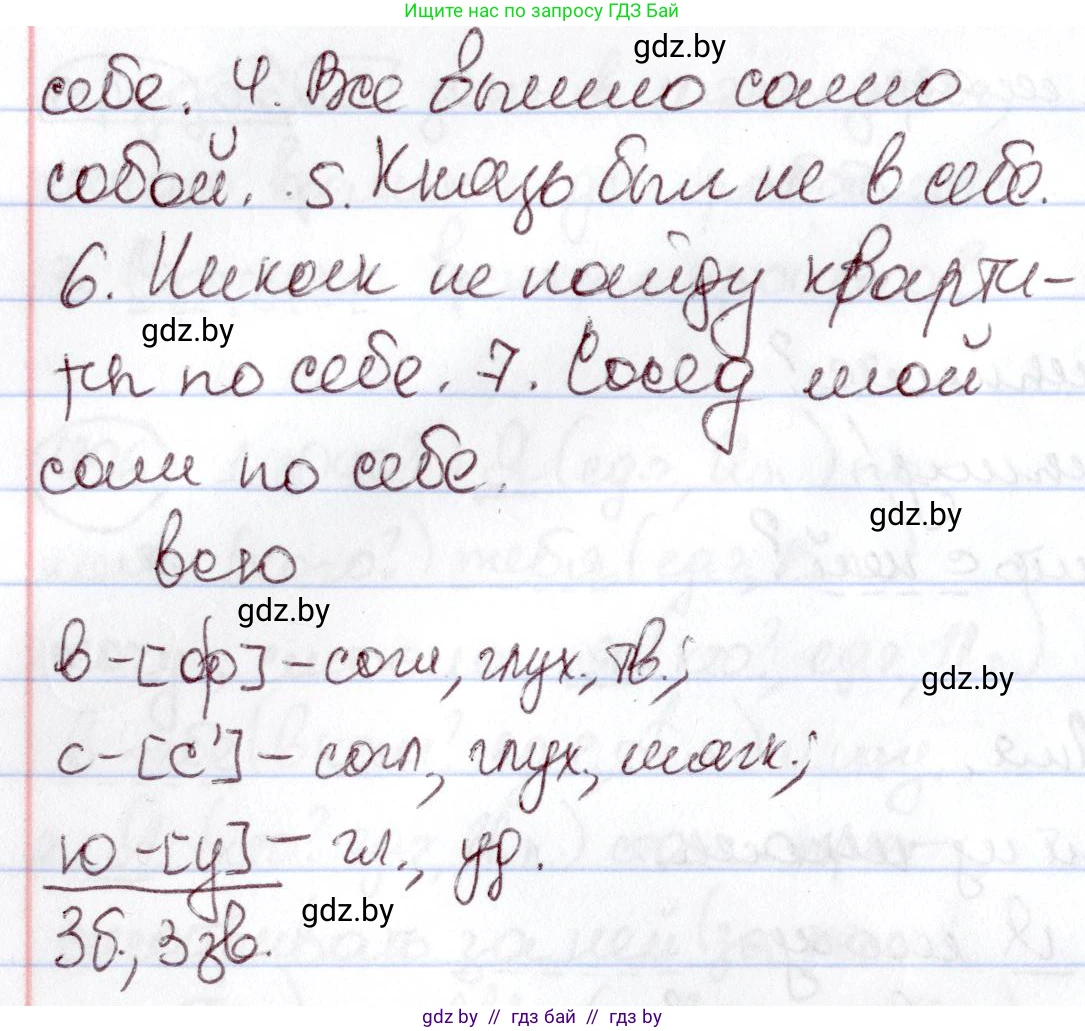 Ищите нас по запросу ГДЗ Бай
gdz.by
себе. 4. Все вышло само
собой. 5. Князь был не в себе.
6. Никак не найду кварти-
gdz.by
ры по себе. 7. Сосед мой
сам по себе.
gdz.by
всю
gdz.by
в-[ф]-согл, глух., тв.;
gdz.by
с-[с']-согл, глух., мягк.;
ю-[у]-гл., уд.
gdz.by
3б., 3зв.
gdz.by // гдз бай // gdz.by